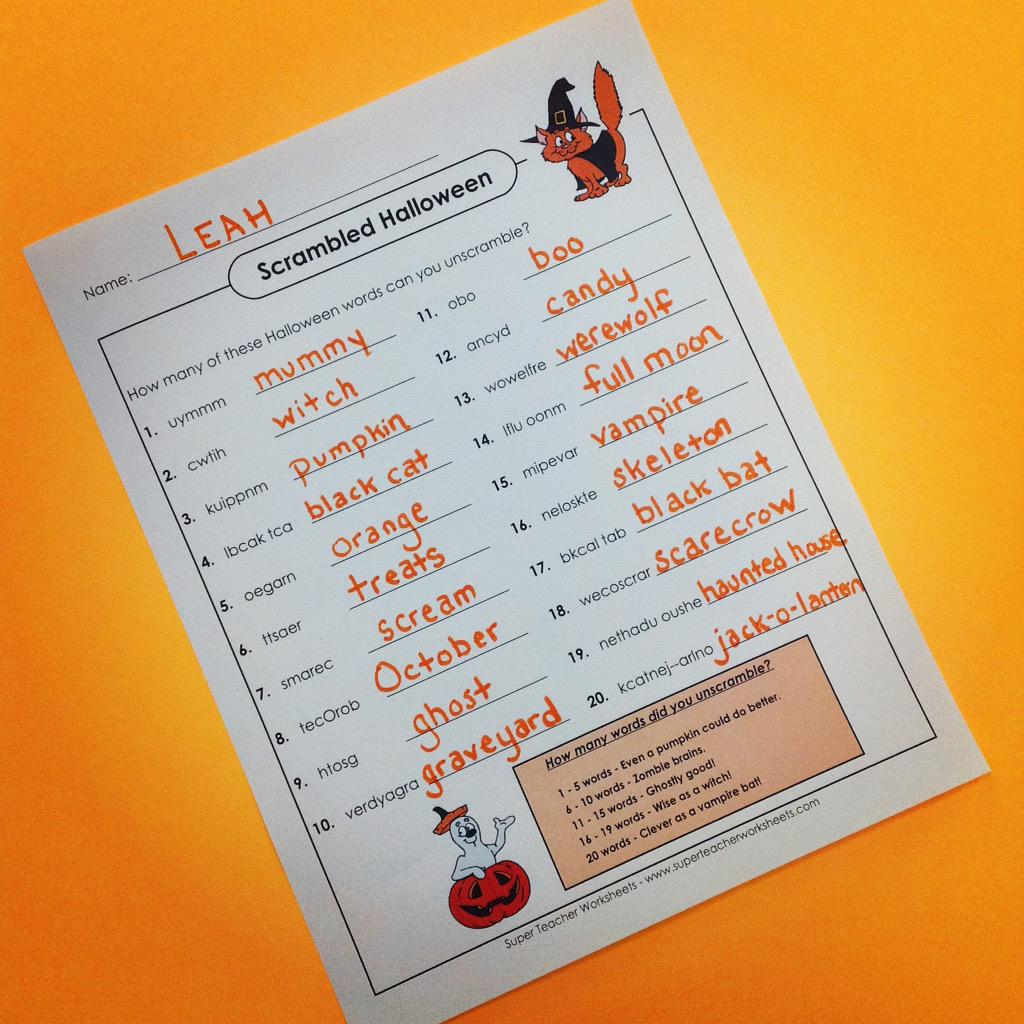 Name: LEAH
Scrambled Halloween
How many of these Halloween words can you unscramble?
1. uymmm mummy
2. cwtih witch
3. kuippnm pumpkin
4. lbcak tca black cat
5. oegarn orange
6. ttsaer treats
7. smarec scream
8. tecOrob October
9. htosg ghost
10. verdyagra graveyard
11. obo boo
12. ancyd candy
13. wowelfre werewolf
14. lflu oonm full moon
15. mipevar vampire
16. neloskte skeleton
17. bkcal tab black bat
18. wecoscrar scarecrow
19. nethadu oushe haunted house
20. kcatnej--arlno jack-o-lantern
How many words did you unscramble?
1 - 5 words - Even a pumpkin could do better.
6 - 10 words - Zombie brains.
11 - 15 words - Ghostly good!
16 - 19 words - Wise as a witch!
20 words - Clever as a vampire bat!
Super Teacher Worksheets - www.superteacherworksheets.com